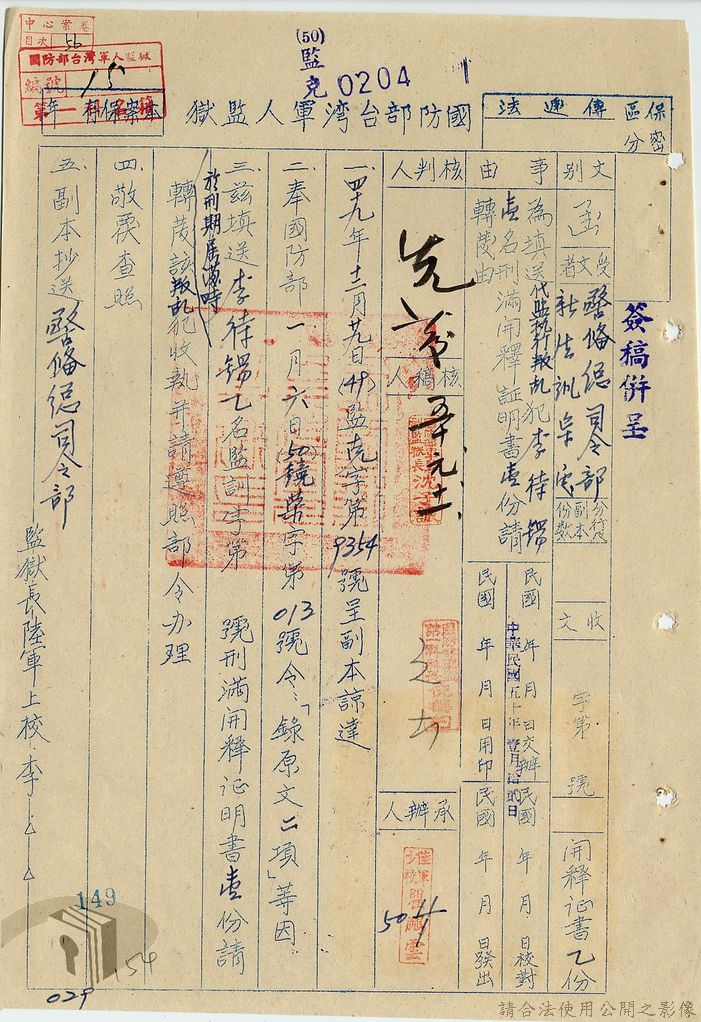 中心業卷
目次 56
國防部台灣軍人監獄
編號 15
本案保存 年
(50)
監
克 0204 1
國防部台湾軍人監獄
傳遞法
保密
區分
簽稿併呈
文別 函
受文者 警備總司令部
新生訓
副本
份數
收文
字第 號
開釋证書乙份
事由
為填送代監執行叛乱犯李待錫
壹名刑滿開釋証明書壹份請
轉發由
民國 年 月 日交辦
民國 年 月 日校對
中華民國五十年壹月 日
民國 年 月 日用印
民國 年 月 日發出
核判人
核稿人
承辦人
50
一、四十九年十二月廿九日(49)監克字第9354號呈副本諒達
二、奉國防部一月六日(50)鏡荣字第013號令:「錄原文二項」等因
三、茲填送李待錫乙名監訓李第 號刑滿開釋证明書壹份請
於刑期屆滿時
轉發該叛乱犯收執并請遵照部令办理
四、敬覆查照
五、副本抄送警備總司令部
監獄長陸軍上校李△△
149
154
029
請合法使用公開之影像